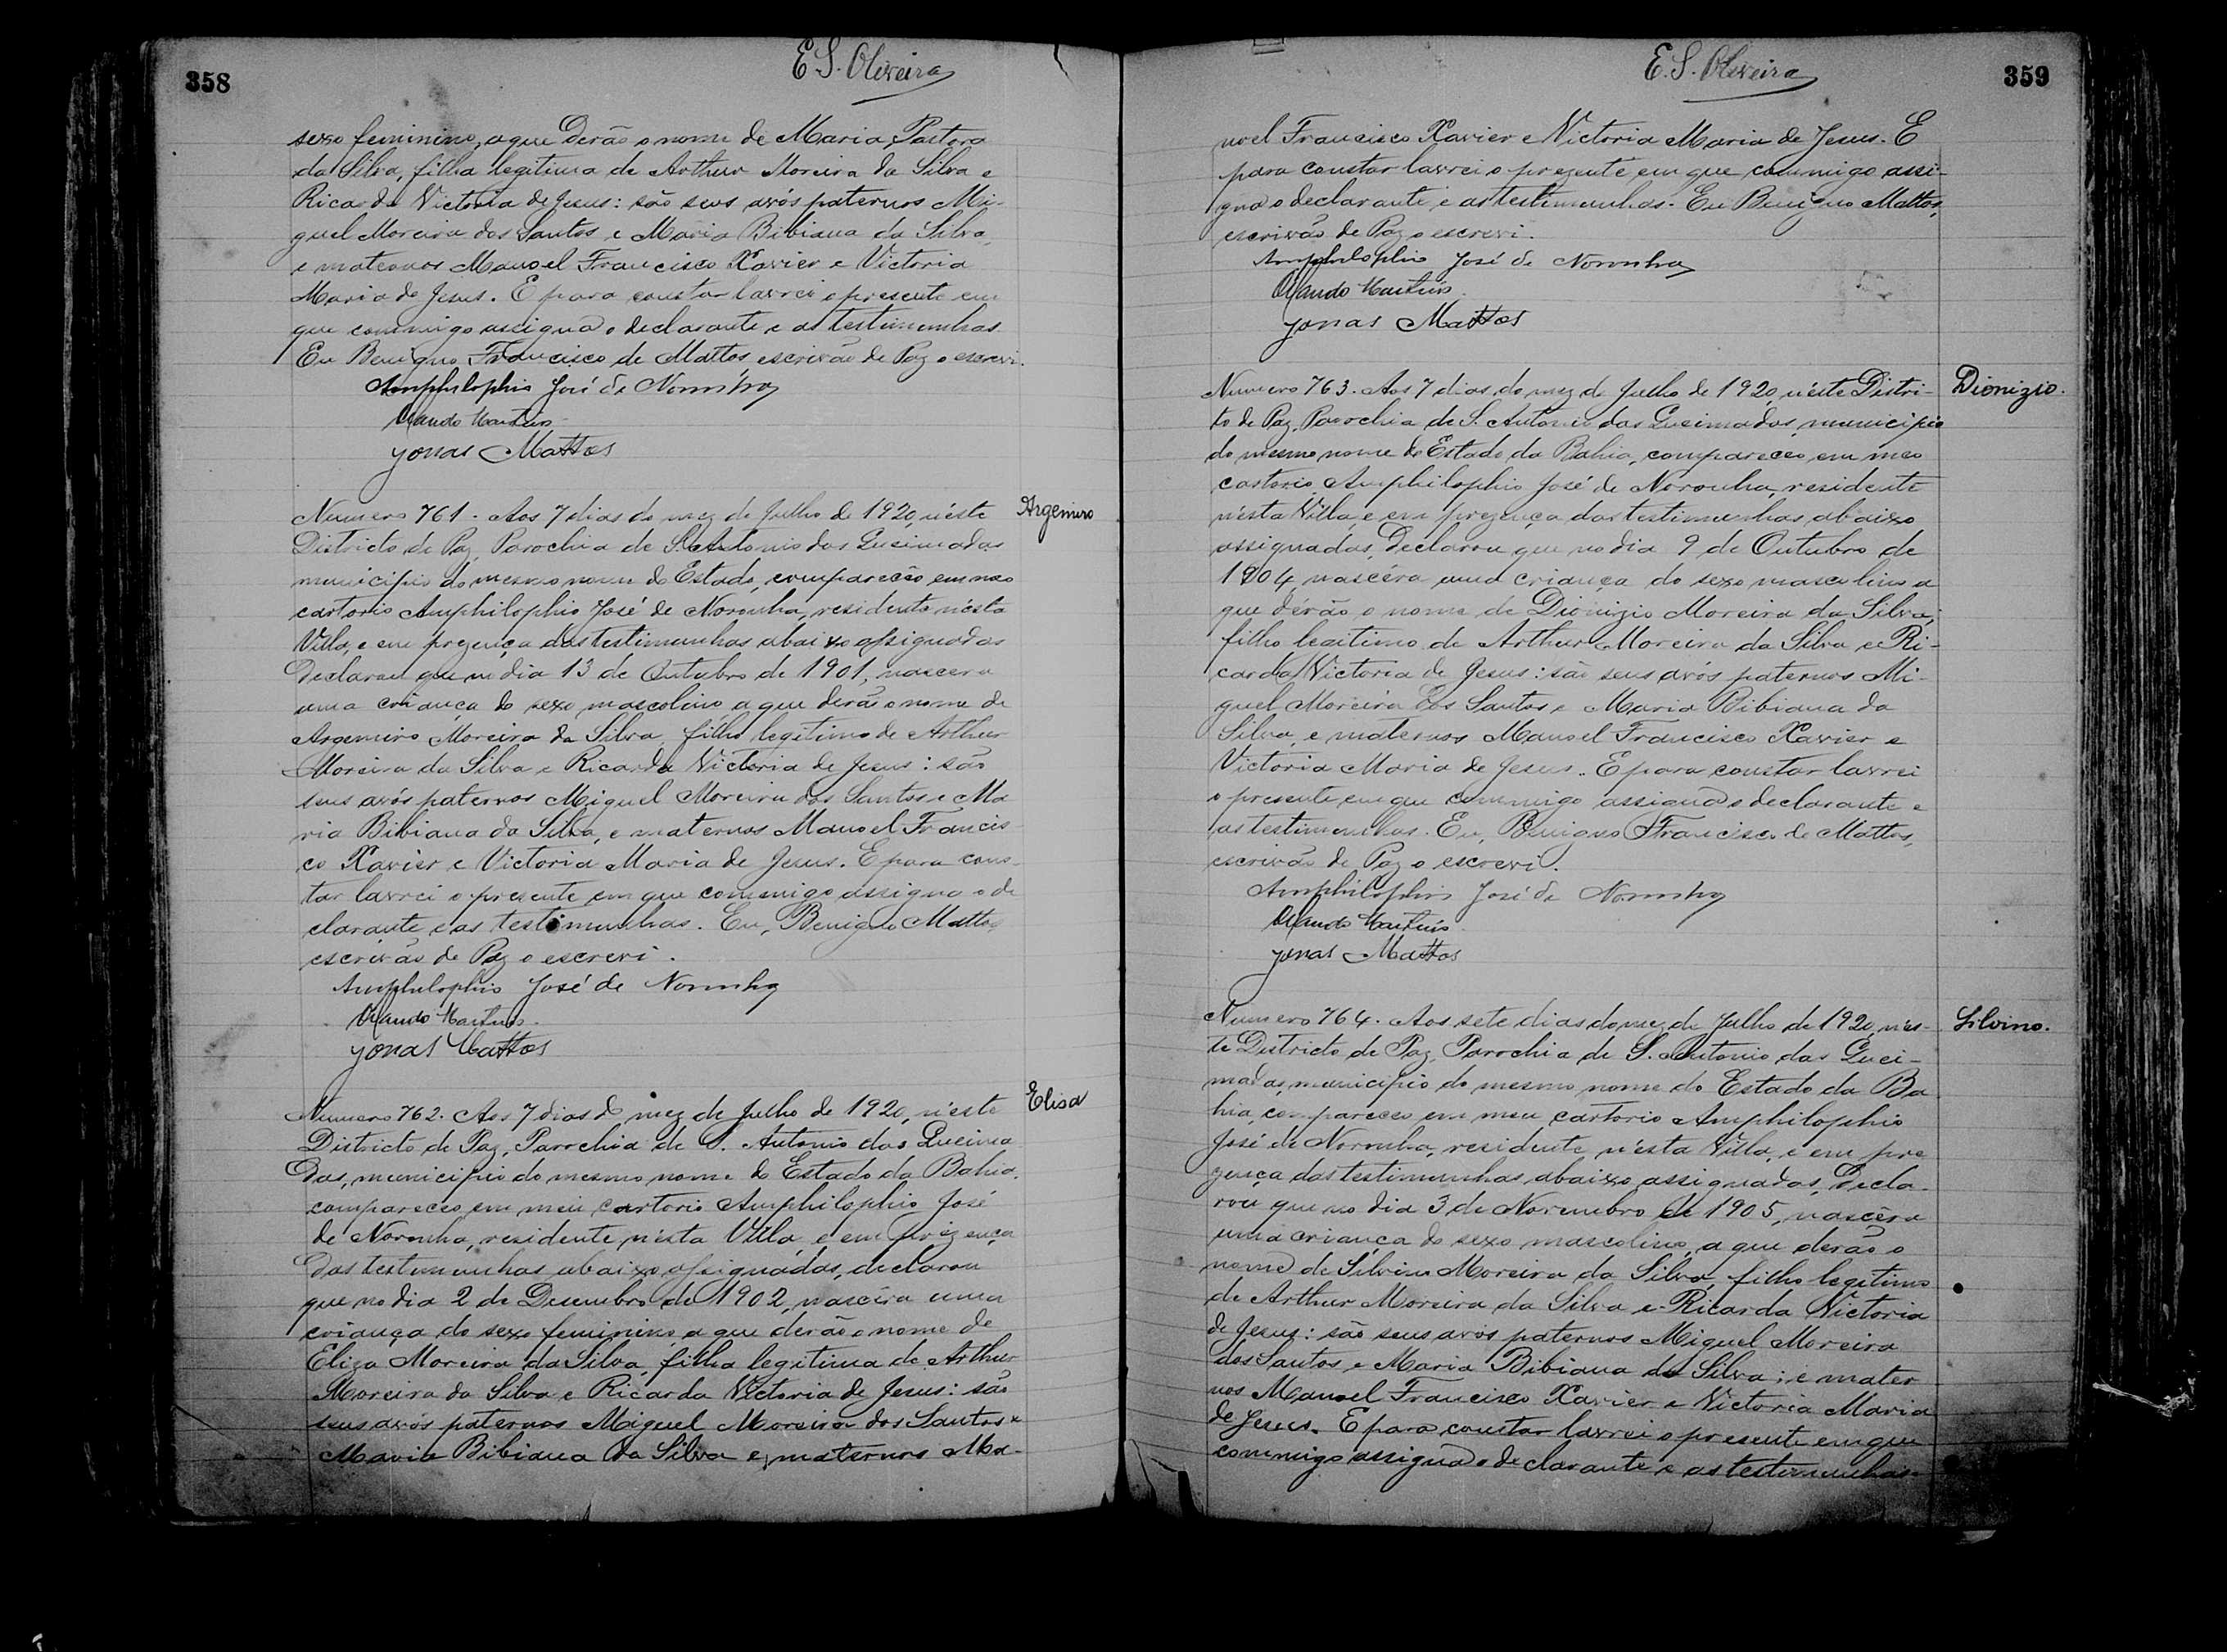 358
E. S. Oliveira
sexo feminino, a que derão o nome de Maria Pastora
da Silva, filha legitima de Arthur Moreira da Silva e
Ricarda Victoria de Jesus: são seus avós paternos Mi-
guel Moreira dos Santos e Maria Bibiana da Silva,
e maternos Manoel Francisco Xavier e Victoria
Maria de Jesus. E para constar lavrei o presente em
que commigo assigna o declarante e as testimunhas.
Eu Benigno Francisco de Mattos escrivão de Paz o escrevi.
Amphilophio José de Noronha
Martins
Jonas Mattos
Argemiro
Numero 761. Aos 7 dias do mez de Julho de 1920, n'éste
Districto de Paz, Parochia de S. Antonio das Queimadas
municipio do mesmo nome do Estado, compareceo em meo
cartorio Amphilophio José de Noronha, residente n'ésta
Villa, e em prezença das testimunhas abaixo assignadas
Declarou que no dia 13 de Outubro de 1901, nascera
uma criança do sexo mascolino a que derão o nome de
Argemiro Moreira da Silva, filho legitimo de Arthur
Moreira da Silva e Ricarda Victoria de Jesus: são
seus avós paternos Miguel Moreira dos Santos e Ma
ria Bibiana da Silva, e maternos Manoel Francis-
co Xavier e Victoria Maria de Jesus. E para cons-
tar lavrei o presente em que commigo assigna o de
clarante e as testimunhas. Eu, Benigno Mattos,
escrivão de Paz o escrevi.
Amphilophio José de Noronha
Martins
Jonas Mattos
Elisa
Numero 762. Aos 7 dias do mez de Julho de 1920, n'éste
Districto de Paz, Parochia de S. Antonio das Queima
das, municipio do mesmo nome do Estado da Bahia,
compareceo em meu cartorio Amphilophio José
de Noronha, residente n'ésta Villa, e em prezença
das testimunhas abaixo assignadas, declarou
que no dia 2 de Desembro de 1902, nascêra uma
criança do sexo feminino a que derão o nome de
Eliza Moreira da Silva, filha legitima de Arthur
Moreira da Silva e Ricarda Victoria de Jesus: são
seus avós paternos Miguel Moreira dos Santos e
Maria Bibiana da Silva e maternos Ma-
E. S. Oliveira
359
noel Francisco Xavier e Victoria Maria de Jesus. E
para constar lavrei o prezente em que commigo assi-
gna o declarante e as testimunhas. Eu Benigno Mattos,
escrivão de Paz o escrevi.
Amphilophio José de Noronha
Martins
Jonas Mattos
Dionizio.
Numero 763. Aos 7 dias do mez de Julho de 1920, n'éste Distri-
to de Paz, Parochia de S. Antonio das Queimadas, municipio
do mesmo nome do Estado da Bahia, compareceo em meo
cartorio Amphilophio José de Noronha, residente
n'ésta Villa, e em prezença das testimunhas abaixo
assignadas, Declarou que no dia 9 de Outubro de
1904, nascêra uma criança do sexo mascolino a
que dérão o nome de Dionizio Moreira da Silva,
filho legitimo de Arthur Moreira da Silva e Ri-
carda Victoria de Jesus: são seus avós paternos Mi-
guel Moreira dos Santos e Maria Bibiana da
Silva, e maternos Manoel Francisco Xavier e
Victoria Maria de Jesus. E para constar lavrei
o presente em que commigo assigna o declarante e
as testimunhas. Eu, Benigno Francisco de Mattos,
escrivão de Paz o escrevi.
Amphilophio José de Noronha
Martins
Jonas Mattos
Silvino.
Numero 764. Aos sete dias do mez de Julho de 1920, n'es-
te Districto de Paz, Parochia de S. Antonio das Quei-
madas, municipio do mesmo nome do Estado da Ba
hia, compareceo em meu cartorio Amphilophio
José de Noronha, residente n'ésta Villa, e em pre
zença das testimunhas abaixo assignadas, Decla-
rou que no dia 3 de Novembro de 1905, nascêra
uma criança do sexo mascolino, a que derão o
nome de Silvino Moreira da Silva, filho legitimo
de Arthur Moreira da Silva e Ricarda Victoria
de Jesus: são seus avós paternos Miguel Moreira
dos Santos e Maria Bibiana da Silva; e mater
nos Manoel Francisco Xavier e Victoria Maria
de Jesus. E para constar lavrei o presente em que
commigo assigna o declarante e as testimunhas.